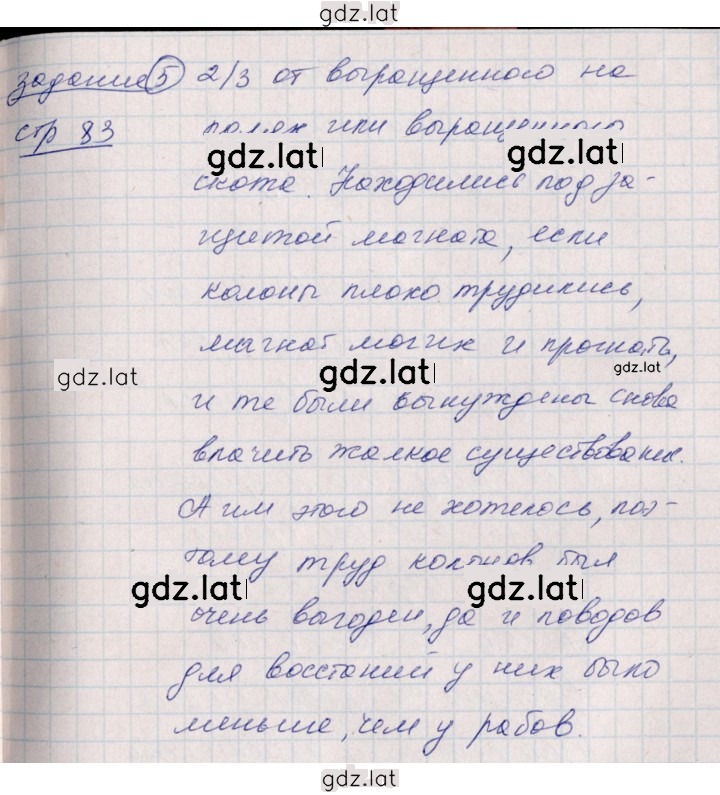 gdz.lat
задание 5 2/3 от выращенного на
стр 83 полях или выращенного
gdz.lat gdz.lat
скота. Находились под за-
щитой магната, если
колоны плохо трудились,
магнат мог их и прогнать,
gdz.lat gdz.lat gdz.lat
и те были вынуждены снова
влачить жалкое существование.
А им этого не хотелось, поэ-
тому труд колонов был
gdz.lat gdz.lat
очень выгоден, да и поводов
для восстаний у них было
меньше, чем у рабов.
gdz.lat